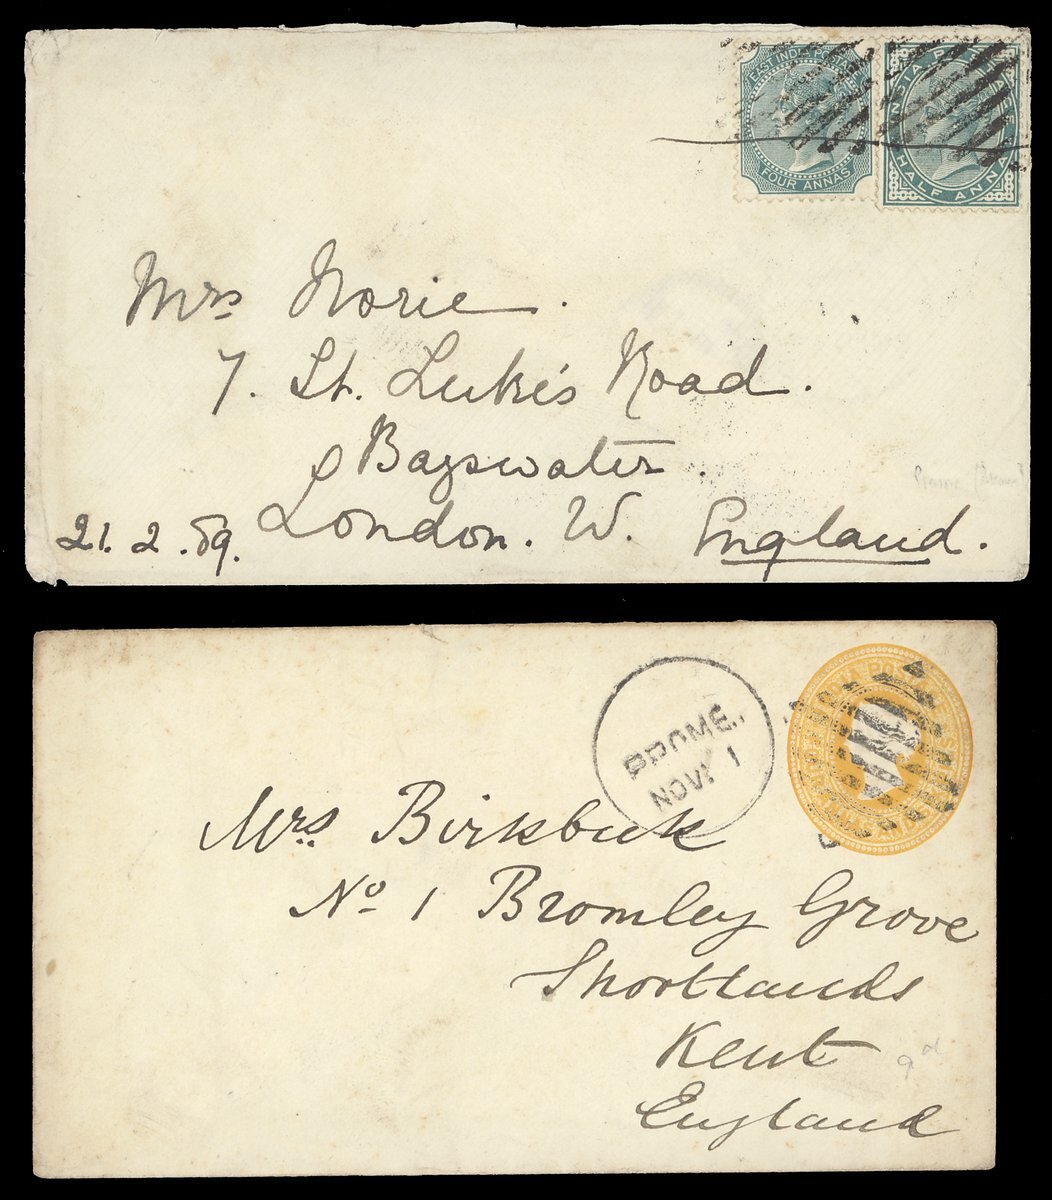 EAST INDIA POSTAGE
FOUR ANNAS
INDIA
HALF ANNA
Mrs Norie.
7. St. Luke's Road.
Bayswater.
London. W. England.
21. 2. 89.
PROME.
NOV. 1
Mrs. Birkbeck
No 1 Bromley Grove
Shortlands
Kent
England